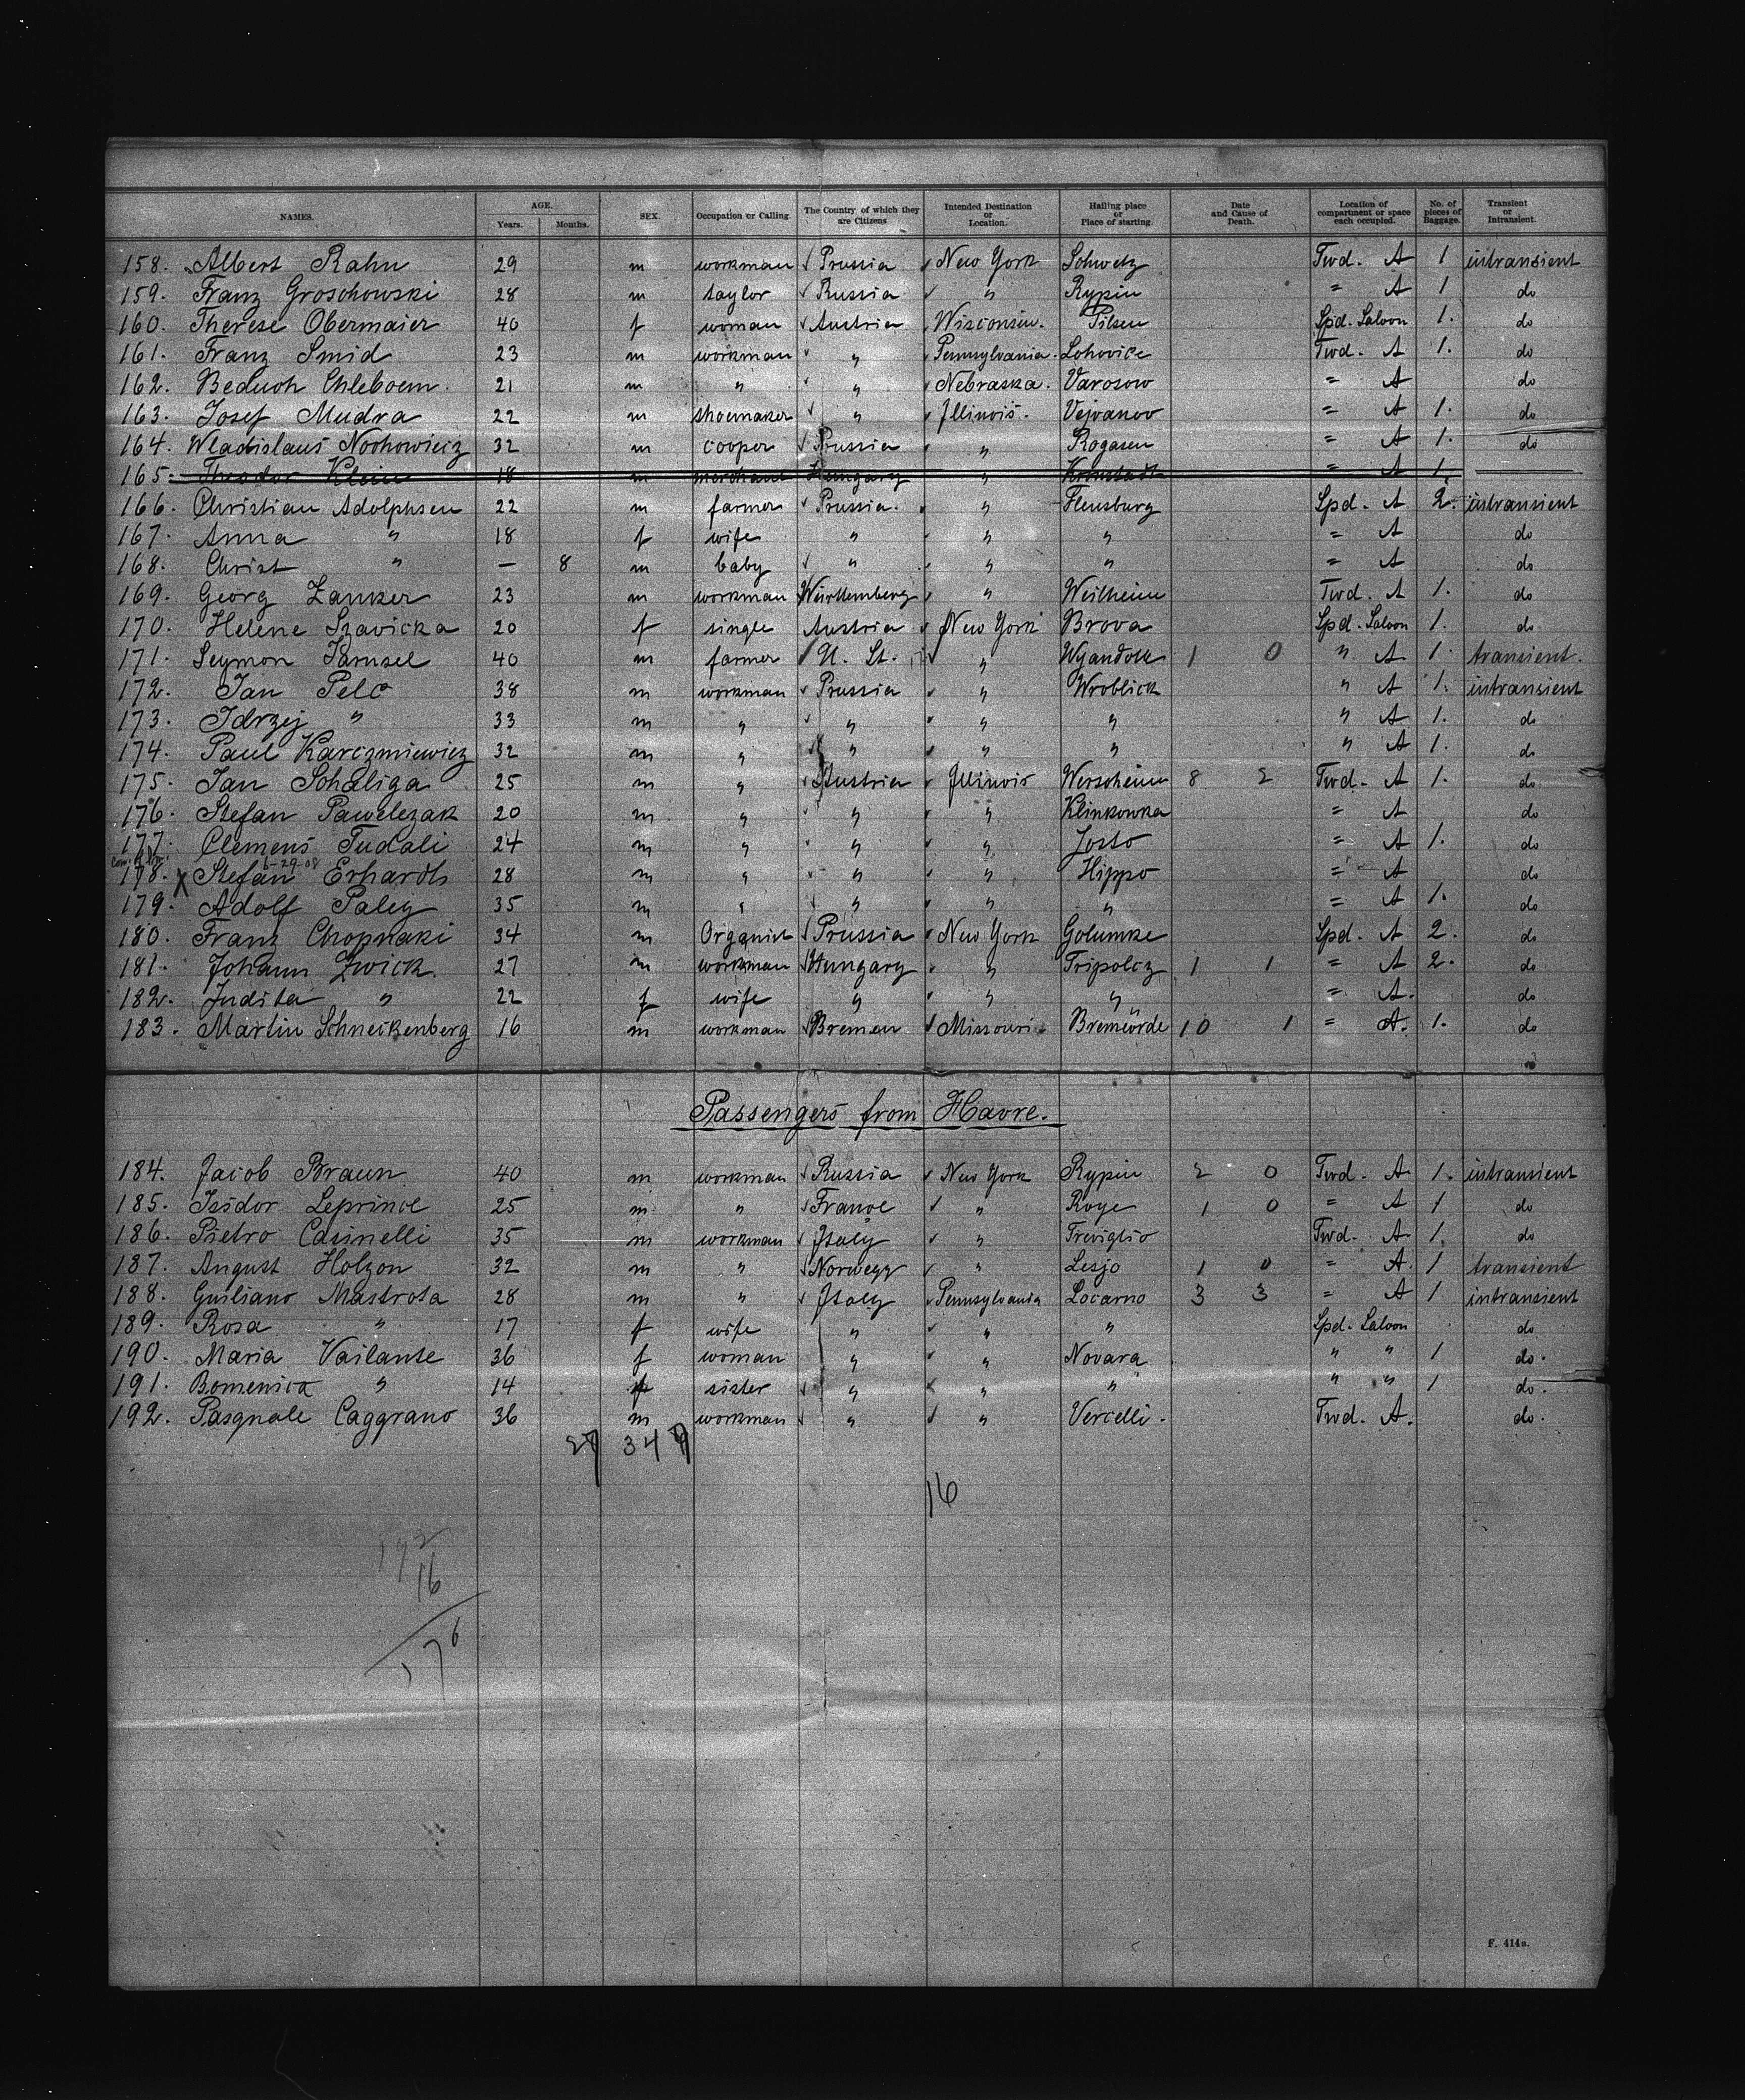 NAMES. AGE. Years. Months. SEX. Occupation or Calling. The Country of which they are Citizens Intended Destination or Location. Hailing place or Place of starting. Date and Cause of Death. Location of compartment or space each occupied. No. of pieces of Baggage. Transient or Intransient.
158. Albert Rahn 29 m workman Prussia New York Schwetz Twd. A 1 intransient
159. Franz Groschowski 28 m taylor Russia " Rypin = A 1 do
160. Therese Obermaier 40 f woman Austria Wisconsin. Pilsen Spd. Saloon 1. do
161. Franz Smid 23 m workman " Pennsylvania. Lohovice Twd. A 1. do
162. Beduch Chleboem. 21 m " " Nebraska. Varosow = A do
163. Josef Mudra 22 m shoemaker " Illinois. Vejvanov = A 1. do
164. Wladislaus Nochowicz 32 m cooper Prussia " Rogasen = A 1. do
165. Theodor Klein 18 m merchant Hungary " Kronstadt = A 1.
166. Christian Adolphsen 22 m farmer Prussia. " Flensburg Spd. A 2. intransient
167. Anna " 18 f wife " " " = A do
168. Christ " — 8 m baby " " " = A do
169. Georg Zanker 23 m workman Württemberg " Weilheim Twd. A 1. do
170. Helene Szavicka 20 f single Austria New York Brova Spd. Saloon 1. do
171. Seymon Jamsel 40 m farmer U. St. " Wyandott 1 0 " A 1. transient.
172. Jan Pelc 38 m workman Prussia " Wroblick " A 1. intransient
173. Idrzej " 33 m " " " " " A 1. do
174. Paul Karczmiewicz 32 m " " " " " A 1. do
175. Jan Schaliga 25 m " Austria Illinois Werscheim 8 2 Twd. A 1. do
176. Stefan Pawelczak 20 m " " " Klinkowka = A do
177. Clemens Tudali 24 m " " " Josto = A 1. do
6-29-08
178. X Stefan Erhardt 28 m " " " Hippo = A do
179. Adolf Paley 35 m " " " " = A 1. do
180. Franz Chopnaki 34 m Organist Prussia New York Golumke Spd. A 2. do
181. Johann Zwick. 27 m workman Hungary " Tripolcz 1 1 = A 2. do
182. Judita " 22 f wife " " " = A. do
183. Martin Schneckenberg 16 m workman Bremen Missouri Bremörde 10 1 = A. 1. do
Passengers from Havre.
184. Jacob Braun 40 m workman Russia New York Rypin 2 0 Twd. A 1. intransient
185. Isidor Leprince 25 m " France " Roye 1 0 = A 1 do
186. Pietro Casinelli 35 m workman Italy " Treviglio Twd. A 1. do
187. August Holzon 32 m " Norwegy " Lesjo 1 0 = A. 1 transient
188. Guiliano Mastrota 28 m " Italy Pennsylvania Locarno 3 3 = A 1 intransient
189. Rosa " 17 f wife " " " Spd. Saloon do
190. Maria Vailante 36 f woman " " Novara " " 1 do.
191. Domenica " 14 f sister " " " " " 1 do.
192. Pasquale Caggrano 36 m workman " " Vercelli. Twd. A. do.
34
16
192
16
176
F. 414a.